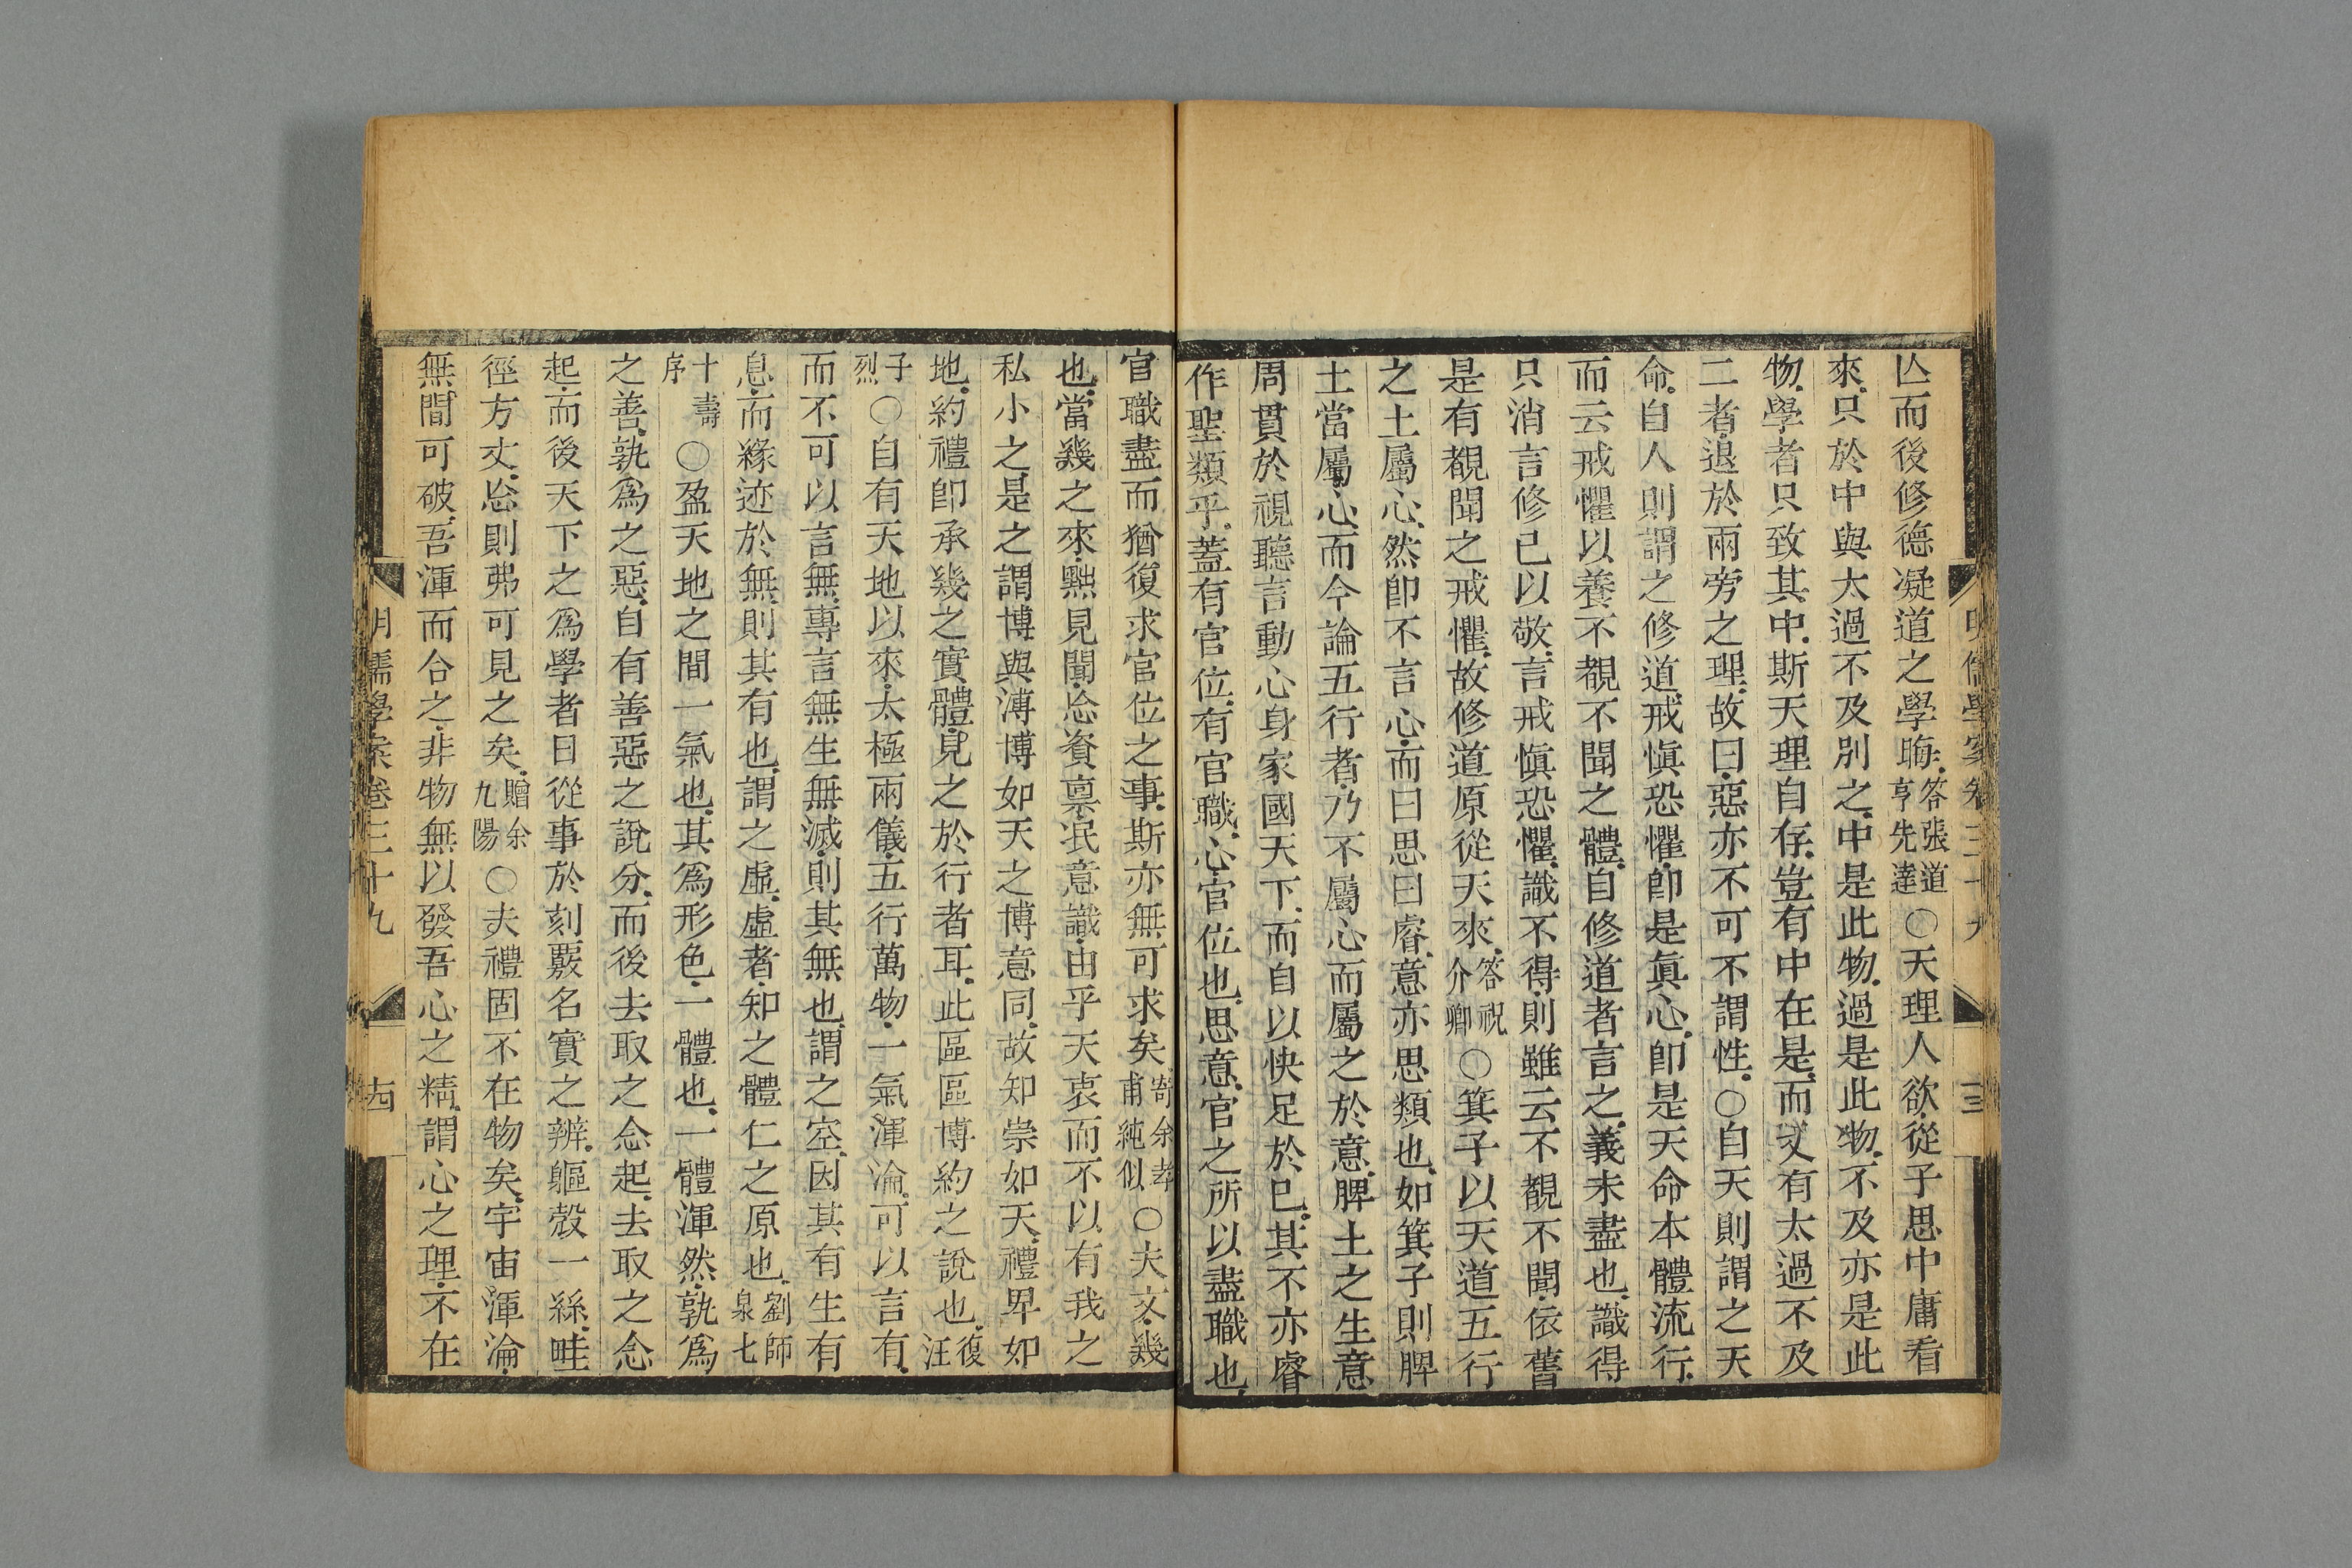 亾而後修德凝道之學晦答張道亨先達○天理人欲從子思中庸看
來只於中與太過不及別之中是此物過是此物不及亦是此
物學者只致其中斯天理自存豈有中在是而又有太過不及
二者退於兩旁之理故曰惡亦不可不謂性○自天則謂之天
命自人則謂之修道戒愼恐懼卽是眞心卽是天命本體流行
而云戒懼以養不覩不聞之體自修道者言之義未盡也識得
只消言修己以敬言戒愼恐懼識不得則雖云不覩不聞依舊
是有覩聞之戒懼故修道原從天來答祝介卿○箕子以天道五行
之土屬心然卽不言心而曰思曰睿意亦思類也如箕子則脾
土當屬心而今論五行者乃不屬心而屬之於意脾土之生意
周貫於視聽言動心身家國天下而自以快足於己其不亦睿
作聖類乎蓋有官位有官職心官位也思意官之所以盡職也
官職盡而猶復求官位之事斯亦無可求矣寄余孝甫純似○夫文幾
也當幾之來㸃見聞忩資稟泯意識由乎天衷而不以有我之
私小之是之謂博與溥博如天之博意同故知崇如天禮卑如
地約禮卽承幾之實體見之於行者耳此區區博約之說也復汪
子烈○自有天地以來太極兩儀五行萬物一氣渾淪可以言有
而不可以言無專言無生無滅則其無也謂之空因其有生有
息而緣迹於無則其有也謂之虛虛者知之體仁之原也劉師泉七
十壽序○盈天地之間一氣也其爲形色一體也一體渾然孰爲
之善孰爲之惡自有善惡之說分而後去取之念起去取之念
起而後天下之爲學者日從事於刻覈名實之辨軀殼一絲畦
徑方丈忩則弗可見之矣贈余九陽○夫禮固不在物矣宇宙渾淪
無間可破吾渾而合之非物無以發吾心之精謂心之理不在
明儒學案卷三十九
十四